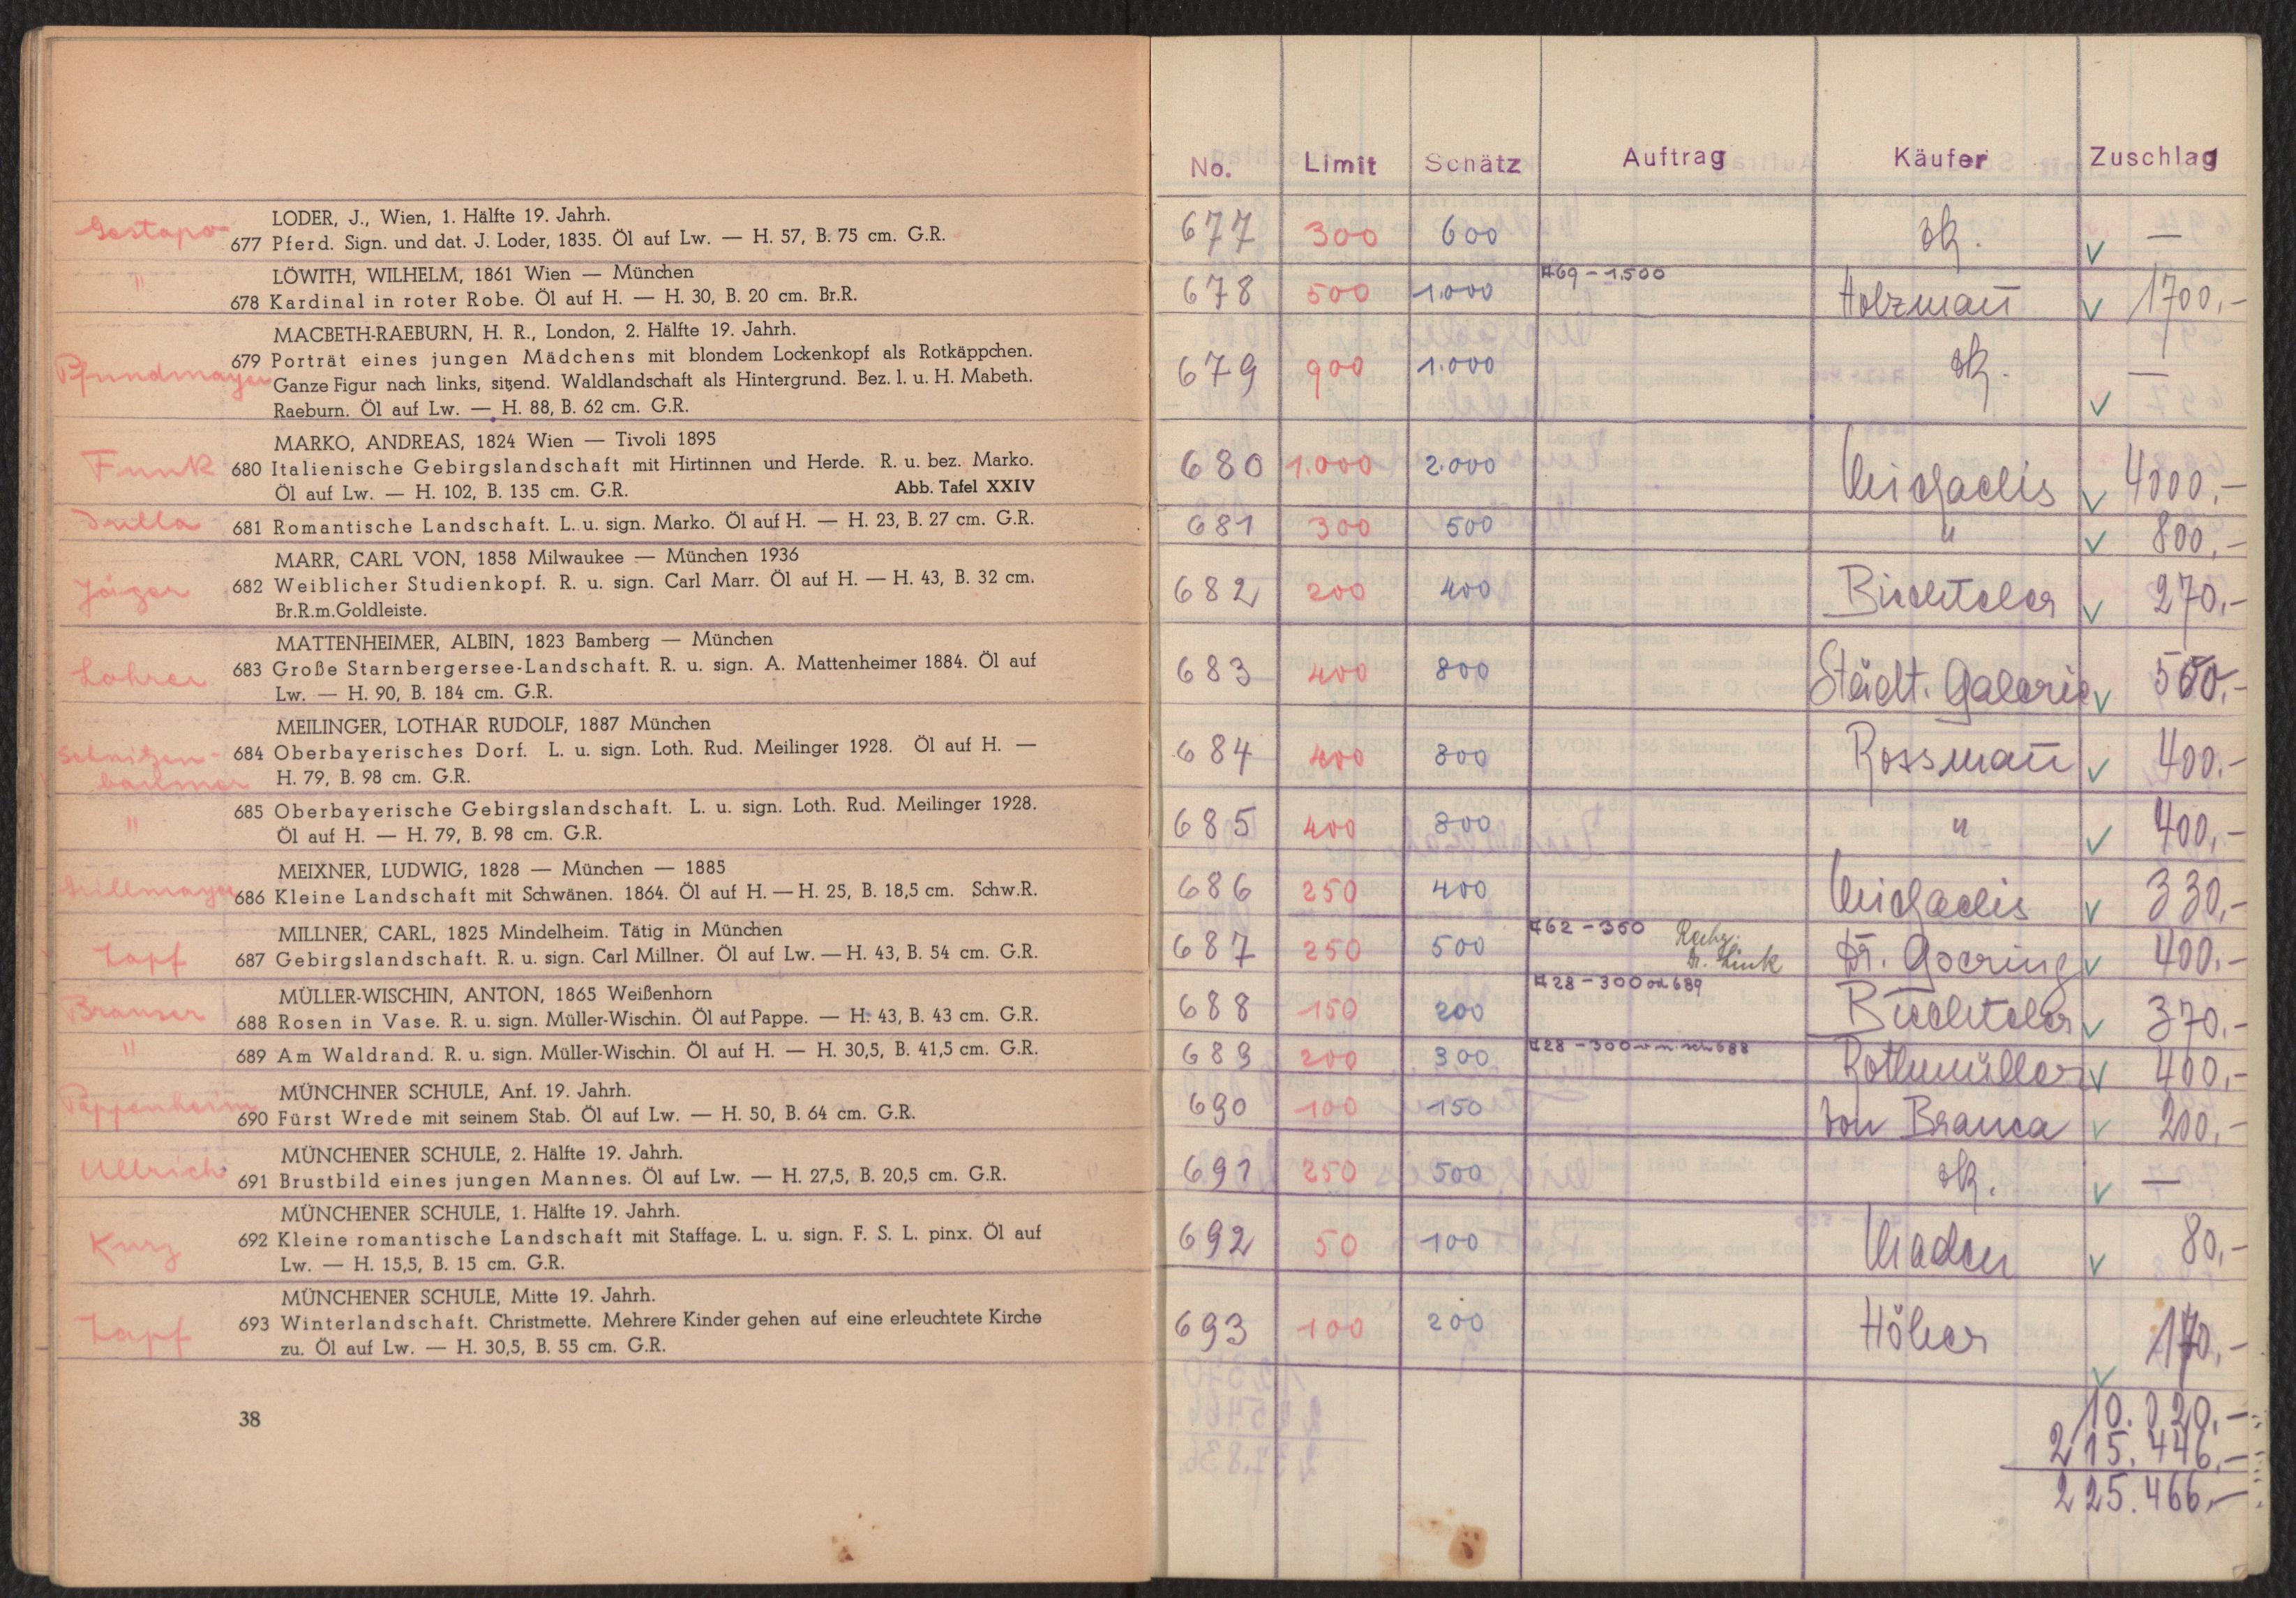 Gestapo
LODER, J., Wien, 1. Hälfte 19. Jahrh.
677 Pferd. Sign. und dat. J. Loder, 1835. Öl auf Lw. — H. 57, B. 75 cm. G.R.
"
LÖWITH, WILHELM, 1861 Wien — München
678 Kardinal in roter Robe. Öl auf H. — H. 30, B. 20 cm. Br.R.
MACBETH-RAEBURN, H. R., London, 2. Hälfte 19. Jahrh.
Pfundmayer
679 Porträt eines jungen Mädchens mit blondem Lockenkopf als Rotkäppchen.
Ganze Figur nach links, sitzend. Waldlandschaft als Hintergrund. Bez. l. u. H. Mabeth.
Raeburn. Öl auf Lw. — H. 88, B. 62 cm. G.R.
MARKO, ANDREAS, 1824 Wien — Tivoli 1895
Funk
680 Italienische Gebirgslandschaft mit Hirtinnen und Herde. R. u. bez. Marko.
Öl auf Lw. — H. 102, B. 135 cm. G.R. Abb. Tafel XXIV
681 Romantische Landschaft. L. u. sign. Marko. Öl auf H. — H. 23, B. 27 cm. G.R.
MARR, CARL VON, 1858 Milwaukee — München 1936
Jäger
682 Weiblicher Studienkopf. R. u. sign. Carl Marr. Öl auf H. — H. 43, B. 32 cm.
Br.R.m.Goldleiste.
MATTENHEIMER, ALBIN, 1823 Bamberg — München
Lohrer
683 Große Starnbergersee-Landschaft. R. u. sign. A. Mattenheimer 1884. Öl auf
Lw. — H. 90, B. 184 cm. G.R.
MEILINGER, LOTHAR RUDOLF, 1887 München
684 Oberbayerisches Dorf. L. u. sign. Loth. Rud. Meilinger 1928. Öl auf H. —
H. 79, B. 98 cm. G.R.
"
685 Oberbayerische Gebirgslandschaft. L. u. sign. Loth. Rud. Meilinger 1928.
Öl auf H. — H. 79, B. 98 cm. G.R.
MEIXNER, LUDWIG, 1828 — München — 1885
686 Kleine Landschaft mit Schwänen. 1864. Öl auf H. — H. 25, B. 18,5 cm. Schw.R.
MILLNER, CARL, 1825 Mindelheim. Tätig in München
Zapf
687 Gebirgslandschaft. R. u. sign. Carl Millner. Öl auf Lw. — H. 43, B. 54 cm. G.R.
MÜLLER-WISCHIN, ANTON, 1865 Weißenhorn
Brauser
688 Rosen in Vase. R. u. sign. Müller-Wischin. Öl auf Pappe. — H. 43, B. 43 cm. G.R.
"
689 Am Waldrand. R. u. sign. Müller-Wischin. Öl auf H. — H. 30,5, B. 41,5 cm. G.R.
MÜNCHNER SCHULE, Anf. 19. Jahrh.
Pappenheim
690 Fürst Wrede mit seinem Stab. Öl auf Lw. — H. 50, B. 64 cm. G.R.
MÜNCHENER SCHULE, 2. Hälfte 19. Jahrh.
Ullrich
691 Brustbild eines jungen Mannes. Öl auf Lw. — H. 27,5, B. 20,5 cm. G.R.
MÜNCHENER SCHULE, 1. Hälfte 19. Jahrh.
Kurz
692 Kleine romantische Landschaft mit Staffage. L. u. sign. F. S. L. pinx. Öl auf
Lw. — H. 15,5, B. 15 cm. G.R.
MÜNCHENER SCHULE, Mitte 19. Jahrh.
Zapf
693 Winterlandschaft. Christmette. Mehrere Kinder gehen auf eine erleuchtete Kirche
zu. Öl auf Lw. — H. 30,5, B. 55 cm. G.R.
38
No. Limit Schätz Auftrag Käufer Zuschlag
677 300 600 zk. —
678 500 1.000 #69 - 1.500 Holzmañ 1700,-
679 900 1.000 zk. —
680 1.000 2.000 Michaelis 4000,-
681 300 500 " 800,-
682 200 400 Büchteler 270,-
683 400 800 Städt. Galerie 500,-
684 400 800 Rossmañ 400,-
685 400 800 " 400,-
686 250 400 Michaelis 330,-
687 250 500 #62 - 350 Dr. Goering 400,-
688 150 200 #28 - 300 od 689 Büchteler 370,-
689 200 300 #28 - 300 Rothmüller 400,-
690 100 150 von Branca 200,-
691 250 500 zk. —
692 50 100 Maden 80,-
693 100 200 Höher 170,-
10.020,-
215.446,-
225.466,-